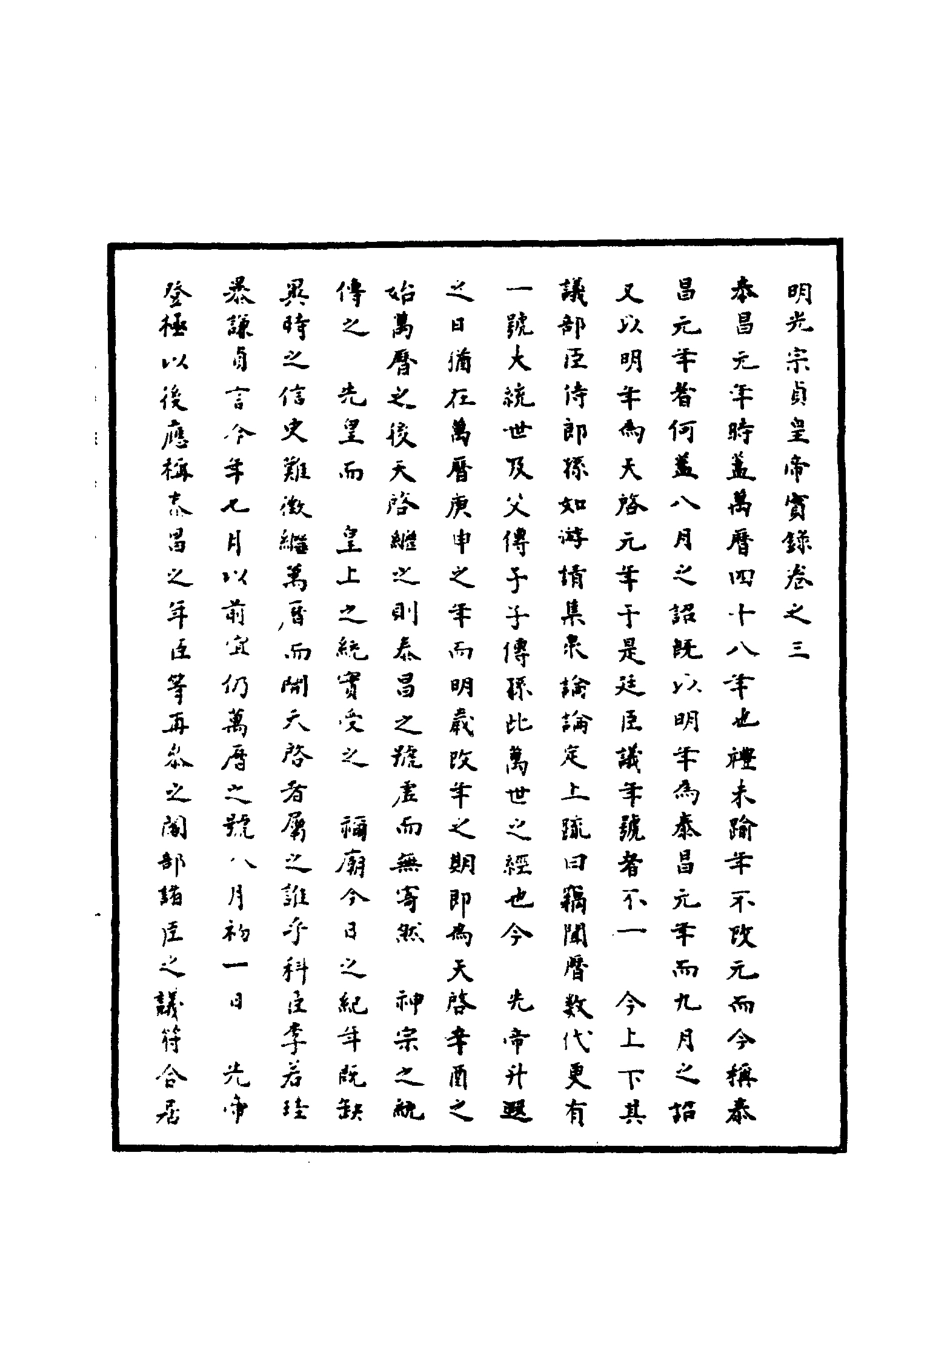 明光宗貞皇帝實錄卷之三
泰昌元年時蓋萬曆四十八年也禮未踰年不改元而今稱泰
昌元年者何蓋八月之詔既以明年為泰昌元年而九月之詔
又以明年為天啓元年于是廷臣議年號者不一　今上下其
議部臣侍郎孫如游請集衆論論定上疏曰竊聞曆數代更有
一號大統世及父傳子子傳孫此萬世之經也今　先帝升遐
之日猶在萬曆庚申之年而明歲改年之期即為天啓辛酉之
始萬曆之後天啓繼之則泰昌之號虛而無寄然　神宗之統
傳之　先皇而　皇上之統實受之　禰廟今日之紀年既缺
異時之信史難徵繼萬曆而開天啓者屬之誰乎科臣李若珪
暴謙貞言今年七月以前宜仍萬曆之號八月初一日　光帝
登極以後應稱泰昌之年臣等再叅之閣部諸臣之議符合居